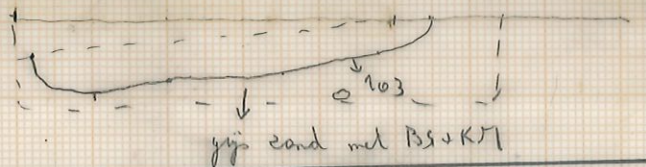 103
grijs zand met BS+KM